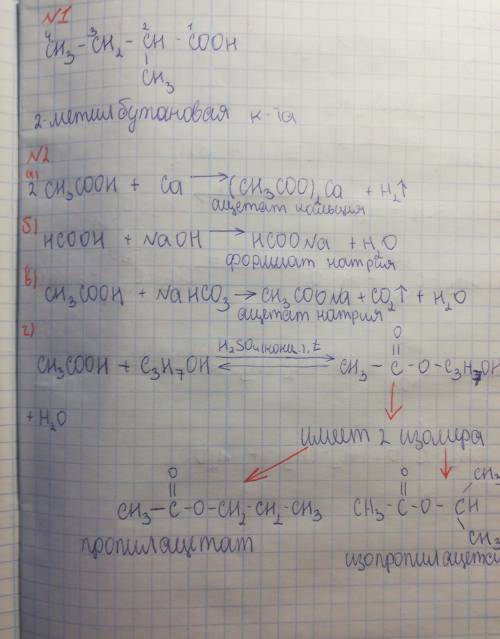 N1
⁴CH₃ - ³CH₂ - ²CH - ¹COOH
CH₃
2-метилбутановая к-та
N2
а) 2CH₃COOH + Ca → (CH₃COO)₂Ca + H₂↑
ацетат кальция
б) HCOOH + NaOH → HCOONa + H₂O
формиат натрия
в) CH₃COOH + NaHCO₃ → CH₃COONa + CO₂↑ + H₂O
ацетат натрия
г) CH₃COOH + C₃H₇OH ⇄ H₂SO₄(конц.), t CH₃ - C - O - C₃H₇
O
+ H₂O
имеет 2 изомера
O O CH₃
CH₃ - C - O - CH₂ - CH₂ - CH₃ CH₃ - C - O - CH
CH₃
пропилацетат изопропилацет